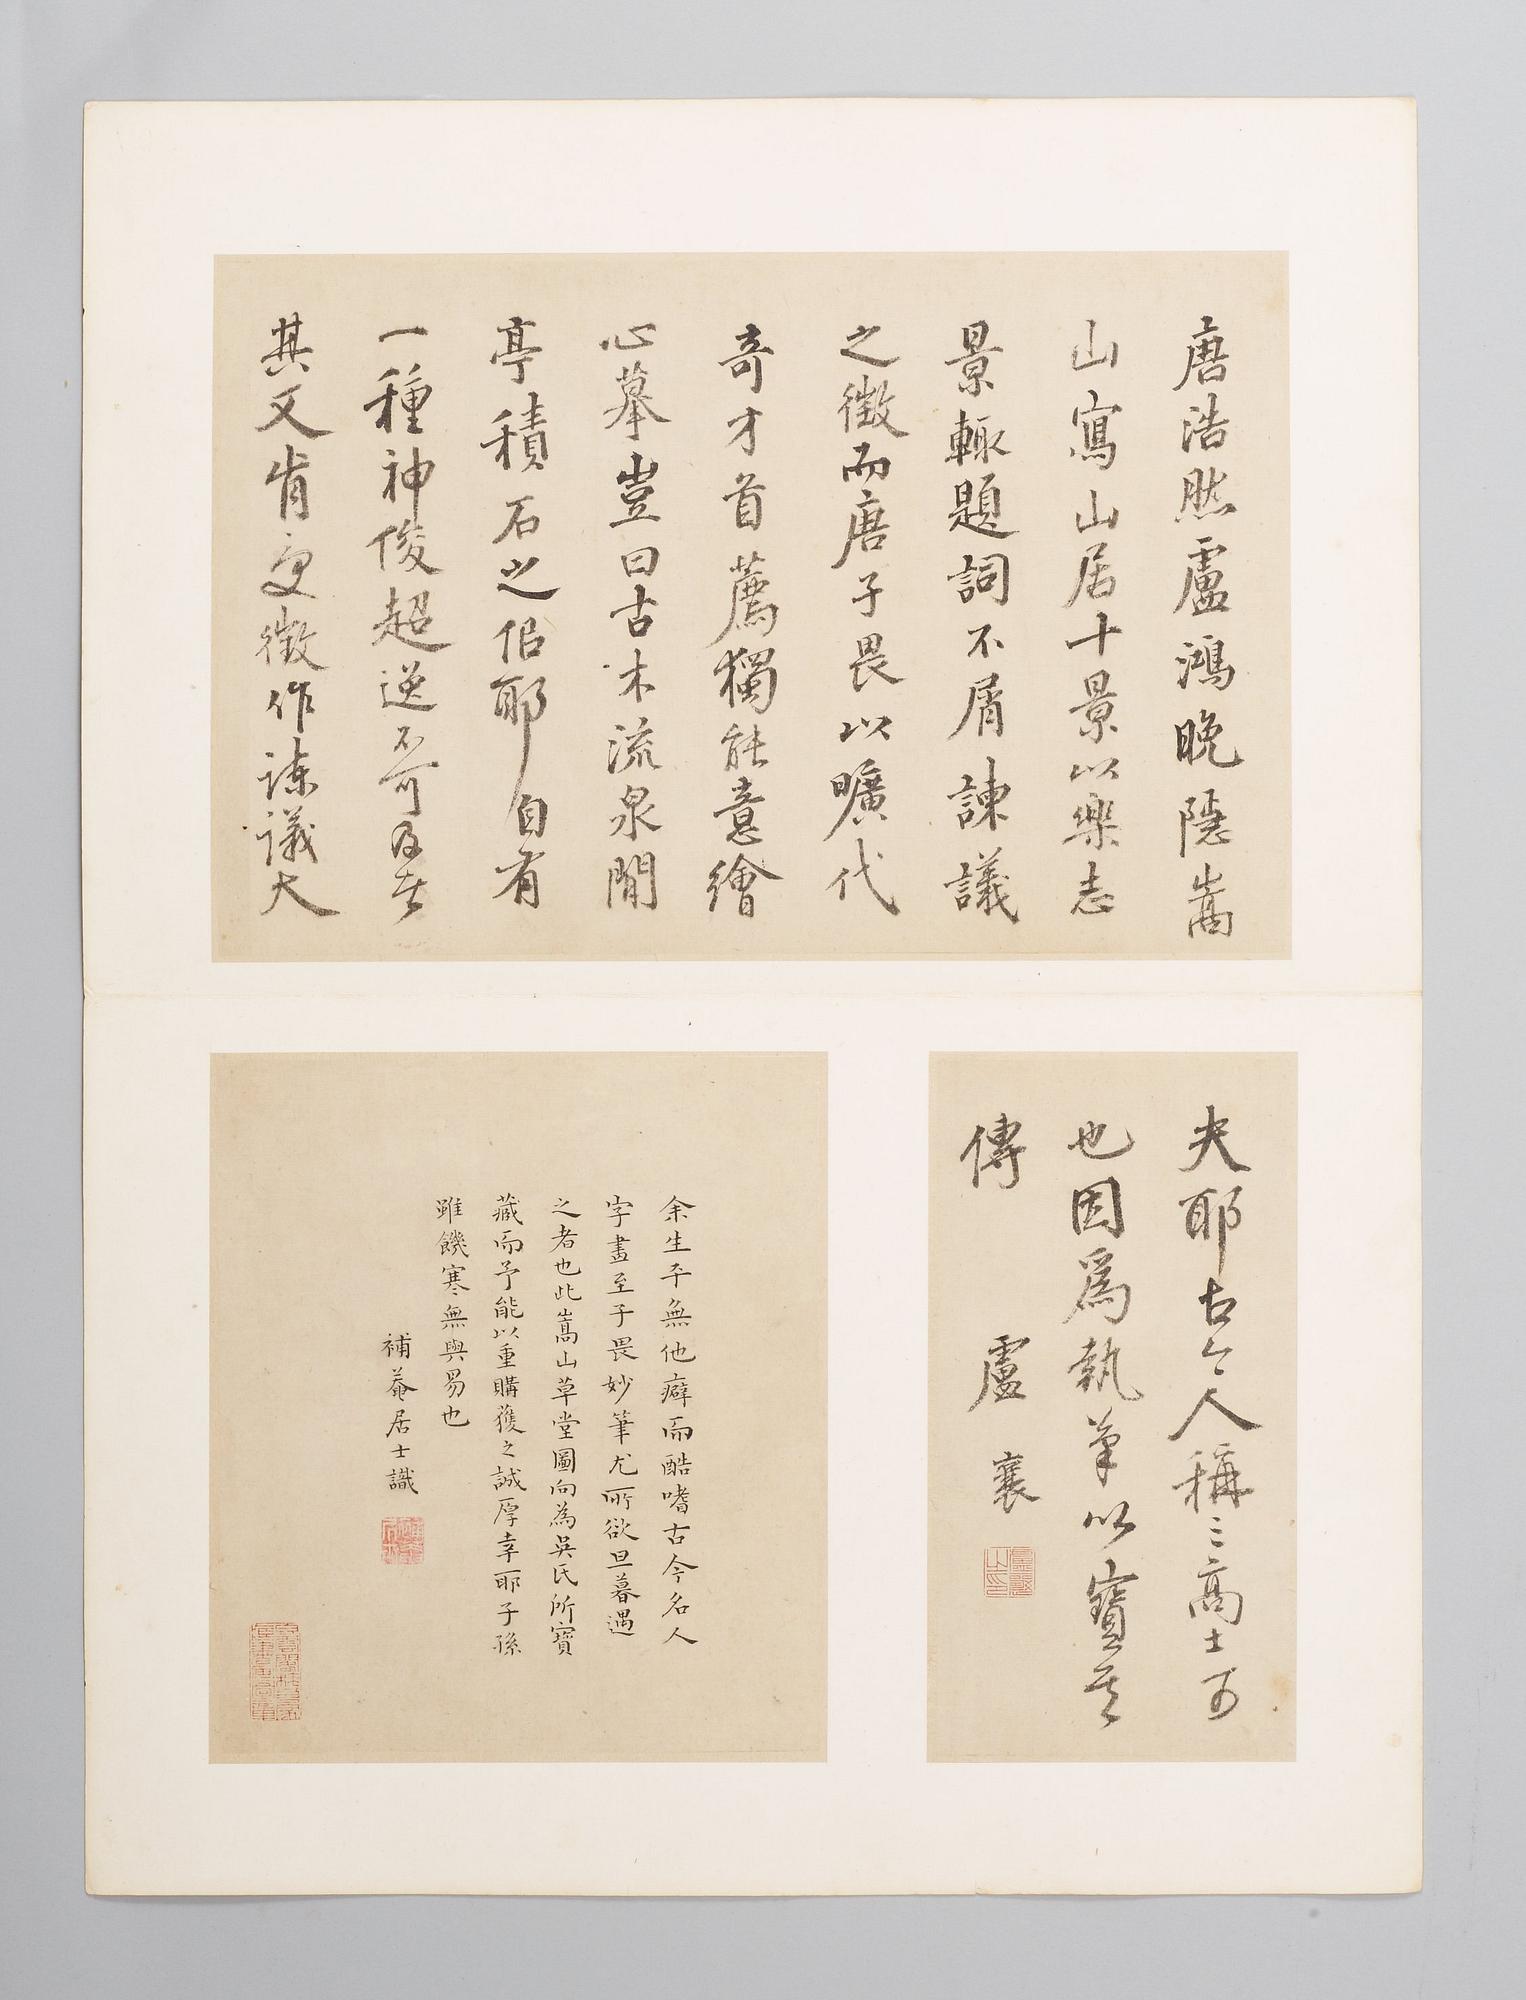 唐浩然盧鴻晚隱嵩
山寫山居十景以樂志
景輙題詞不屑諫議
之徵而唐子畏以曠代
奇才首薦獨能意繪
心摹豈曰古木流泉閒
亭積石之侶耶自有
一種神俊超逆不可及者
其又肯更徵作諫議大
夫耶古今人稱三高士可
也因為執筆以寶其
傳
盧襄
余生平無他癖而酷嗜古今名人
字畫至子畏妙筆尤所欲旦暮遇
之者也此嵩山草堂圖向為吳氏所寶
藏而予能以重購獲之誠厚幸耶子孫
雖饑寒無與易也
補菴居士識